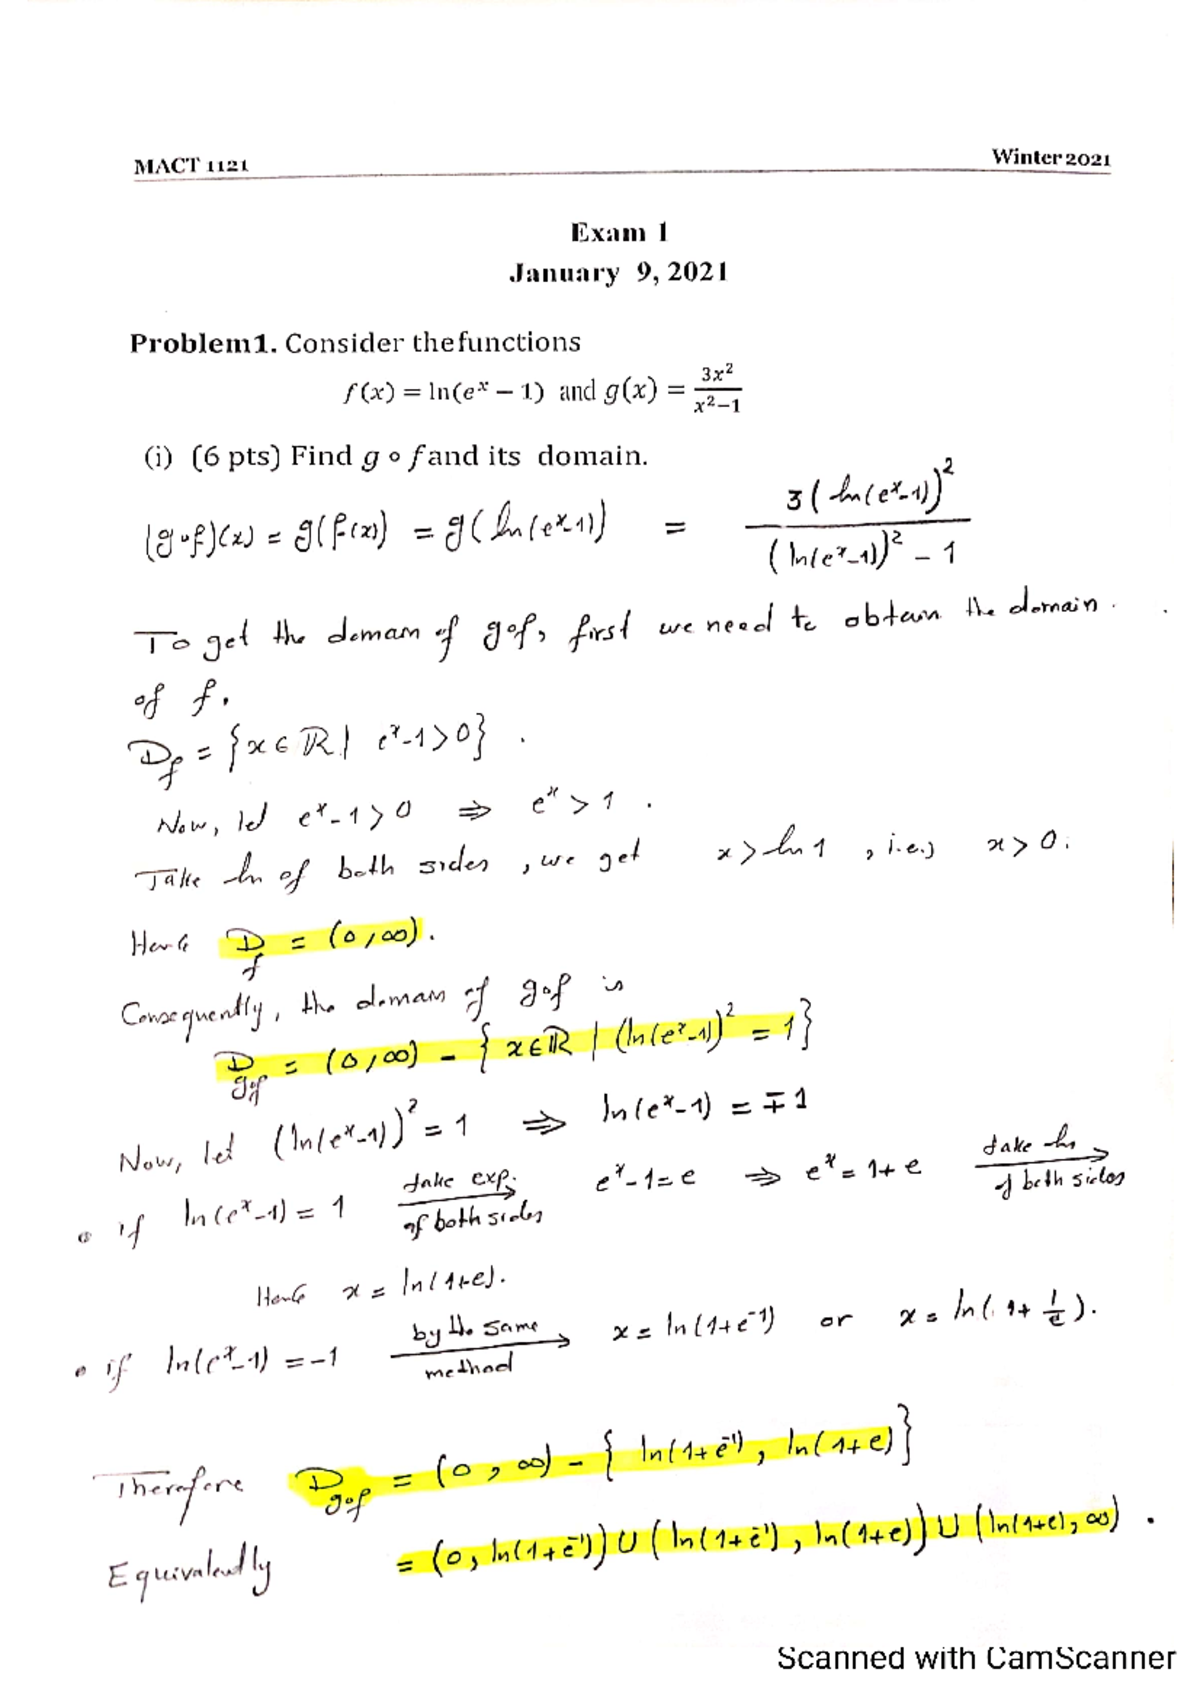 MACT 1121 Winter 2021
Exam 1
January 9, 2021
Problem1. Consider the functions
f(x) = ln(eˣ − 1) and g(x) = 3x²/(x²−1)
(i) (6 pts) Find g ∘ f and its domain.
(g∘f)(x) = g(f(x)) = g(ln(eˣ-1)) = 3(ln(eˣ-1))² / ((ln(eˣ-1))² - 1)
To get the domain of gof, first we need to obtain the domain.
of f.
D_f = {x ∈ ℝ | eˣ-1>0}.
Now, let eˣ-1>0 ⇒ eˣ > 1.
Take ln of both sides, we get x > ln 1, i.e., x > 0.
Hence D_f = (0, ∞).
Consequently, the domain of gof is
D_gof = (0, ∞) - {x∈ℝ | (ln(eˣ-1))² = 1}
Now, let (ln(eˣ-1))² = 1 ⇒ ln(eˣ-1) = ∓1
• if ln(eˣ-1) = 1 take exp. of both sides → eˣ-1=e ⇒ eˣ = 1+e take ln of both sides →
Hence x = ln(1+e).
• if ln(eˣ-1) = -1 by the same method → x = ln(1+e⁻¹) or x = ln(1+ 1/e).
Therefore D_gof = (0, ∞) - {ln(1+e⁻¹), ln(1+e)}
Equivalently = (0, ln(1+e⁻¹)) ∪ (ln(1+e⁻¹), ln(1+e)) ∪ (ln(1+e), ∞).
Scanned with CamScanner